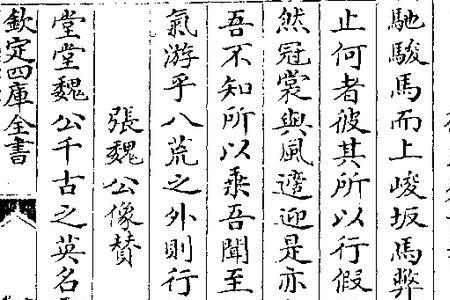 馳駿馬而上峻坂馬弊
止何者彼其所以行假
然冠裳與風遰迎是亦
吾不知所以乗吾聞至
氣游乎八荒之外則行
張魏公像賛
堂堂魏公千古之英名
欽定四庫全書